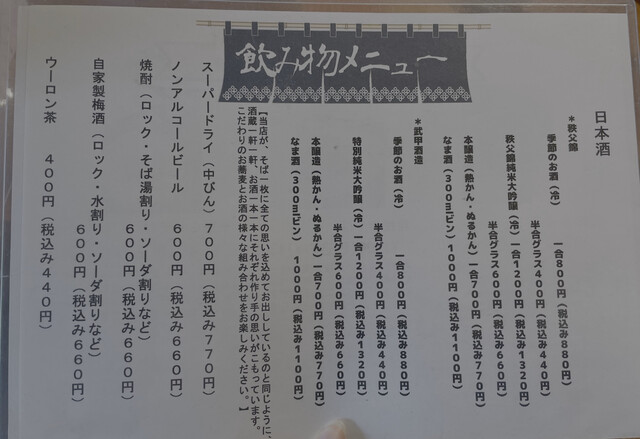 飲み物メニュー
日本酒
*秩父錦
季節のお酒(冷) 一合800円(税込み880円)
半合グラス400円(税込み440円)
秩父錦純米大吟醸(冷)一合1200円(税込み1320円)
半合グラス600円(税込み660円)
本醸造(熱かん・ぬるかん)一合700円(税込み770円)
なま酒(300mlビン) 1000円(税込み1100円)
*武甲酒造
季節のお酒(冷) 一合800円(税込み880円)
半合グラス400円(税込み440円)
特別純米大吟醸(冷)一合1200円(税込み1320円)
半合グラス600円(税込み660円)
本醸造(熱かん・ぬるかん)一合700円(税込み770円)
なま酒(300mlビン) 1000円(税込み1100円)
【当店が、そば一枚に全ての思いを込めてお出ししているのと同じように、
酒蔵一軒一軒、お酒一本一本にそれぞれ作り手の思いがこもっています。
こだわりのお蕎麦とお酒の様々な組み合わせをお楽しみください。】
スーパードライ(中びん)700円(税込み770円)
ノンアルコールビール 600円(税込み660円)
焼酎(ロック・そば湯割り・ソーダ割りなど)
600円(税込み660円)
自家製梅酒(ロック・水割り・ソーダ割りなど)
600円(税込み660円)
ウーロン茶 400円(税込み440円)